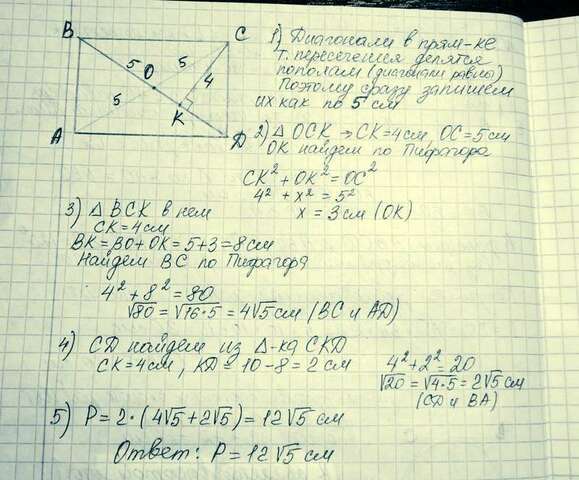 B C
5 O 5 4
5
K
A D
1) Диагонали в прям-ке
т. пересечения делятся
пополам (диагонали равны)
Поэтому сразу запишем
их как по 5 см
2) △ OCK → CK=4см, OC=5см
OK найдем по Пифагора
CK² + OK² = OC²
4² + x² = 5²
x = 3см (OK)
3) △ BCK в нем
CK=4см
BK = BO+OK = 5+3=8см
Найдем BC по Пифагоря
4² + 8² = 80
√80 = √16*5 = 4√5 см (BC и AD)
4) CD найдем из △-ка CKD
CK=4см, KD = 10-8 = 2 см
4²+2² = 20
√20 = √4·5 = 2√5 см
(CD и BA)
5) P = 2·(4√5 + 2√5) = 12√5 см
Ответ: P = 12√5 см